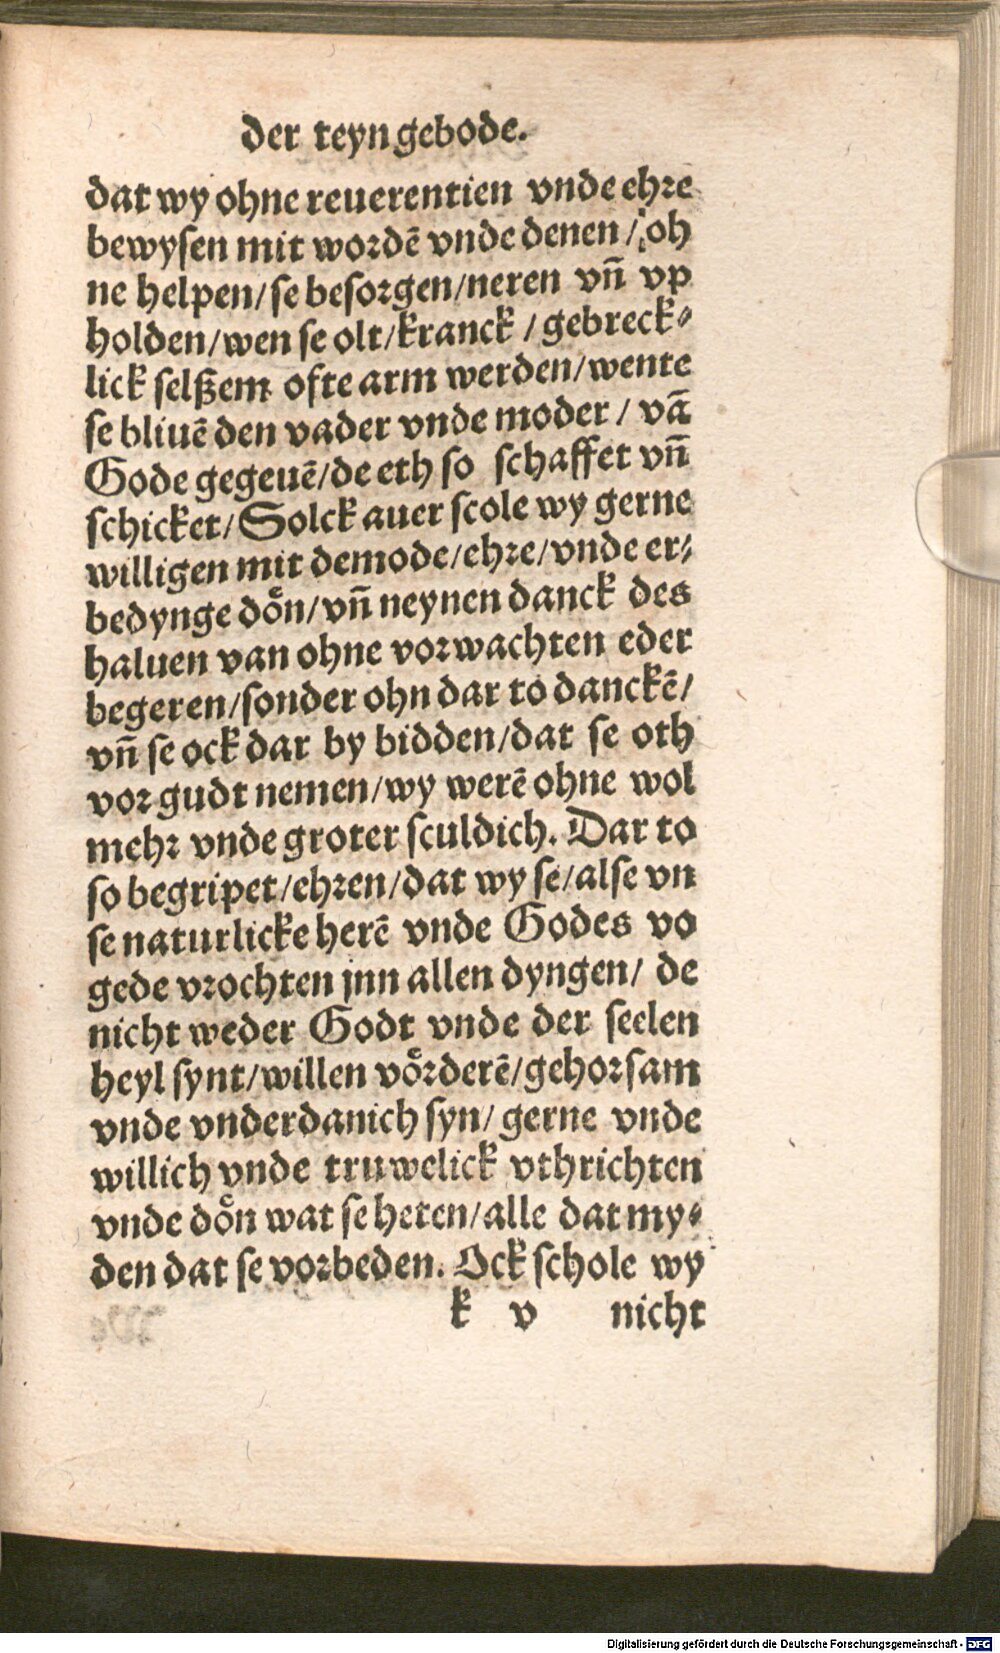 der teyn gebode.
dat wy ohne reuerentien vnde ehꝛe
bewyſen mit woꝛdẽ vnde denen / oh
ne helpen/ſe beſoꝛgen/neren vñ vp
holden/wen ſe olt/kranck / gebreck⸗
lick ſelßem ofte arm werden/wente
ſe bliuẽ den vader vnde moder / vã
Gode gegeuẽ/de eth ſo ſchaffet vñ
ſchicket/Solck auer ſcole wy gerne
willigen mit demode/ehꝛe/vnde er⸗
bedynge doͤn/vñ neynen danck des
haluen van ohne voꝛwachten eder
begeren/ſonder ohn dar to danckẽ/
vñ ſe ock dar by bidden/dat ſe oth
voꝛ gudt nemen/wy werẽ ohne wol
mehꝛ vnde groter ſculdich. Dar to
ſo begripet/ehꝛen/dat wy ſe/alſe vn
ſe naturlicke herẽ vnde Godes vo
gede vꝛochten jnn allen dyngen/ de
nicht weder Godt vnde der ſeelen
heyl ſynt/willen voͤꝛderẽ/gehoꝛſam
vnde vnderdanich ſyn/ gerne vnde
willich vnde truwelick vthrichten
vnde doͤn wat ſe heten/alle dat my⸗
den dat ſe voꝛbeden. Ock ſchole wy
k v nicht
Digitalisierung gefördert durch die Deutsche Forschungsgemeinschaft - DFG